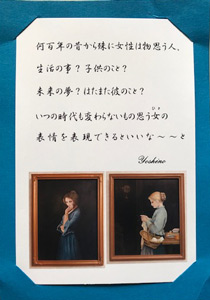 何百年の昔から妹に女性は物思う人、
生活の事？子供のこと？
未来の夢？はたまた彼のこと？
いつの時代も変わらないもの思う女の
ひと
表情を表現できるといいな〜〜と
Yoshino